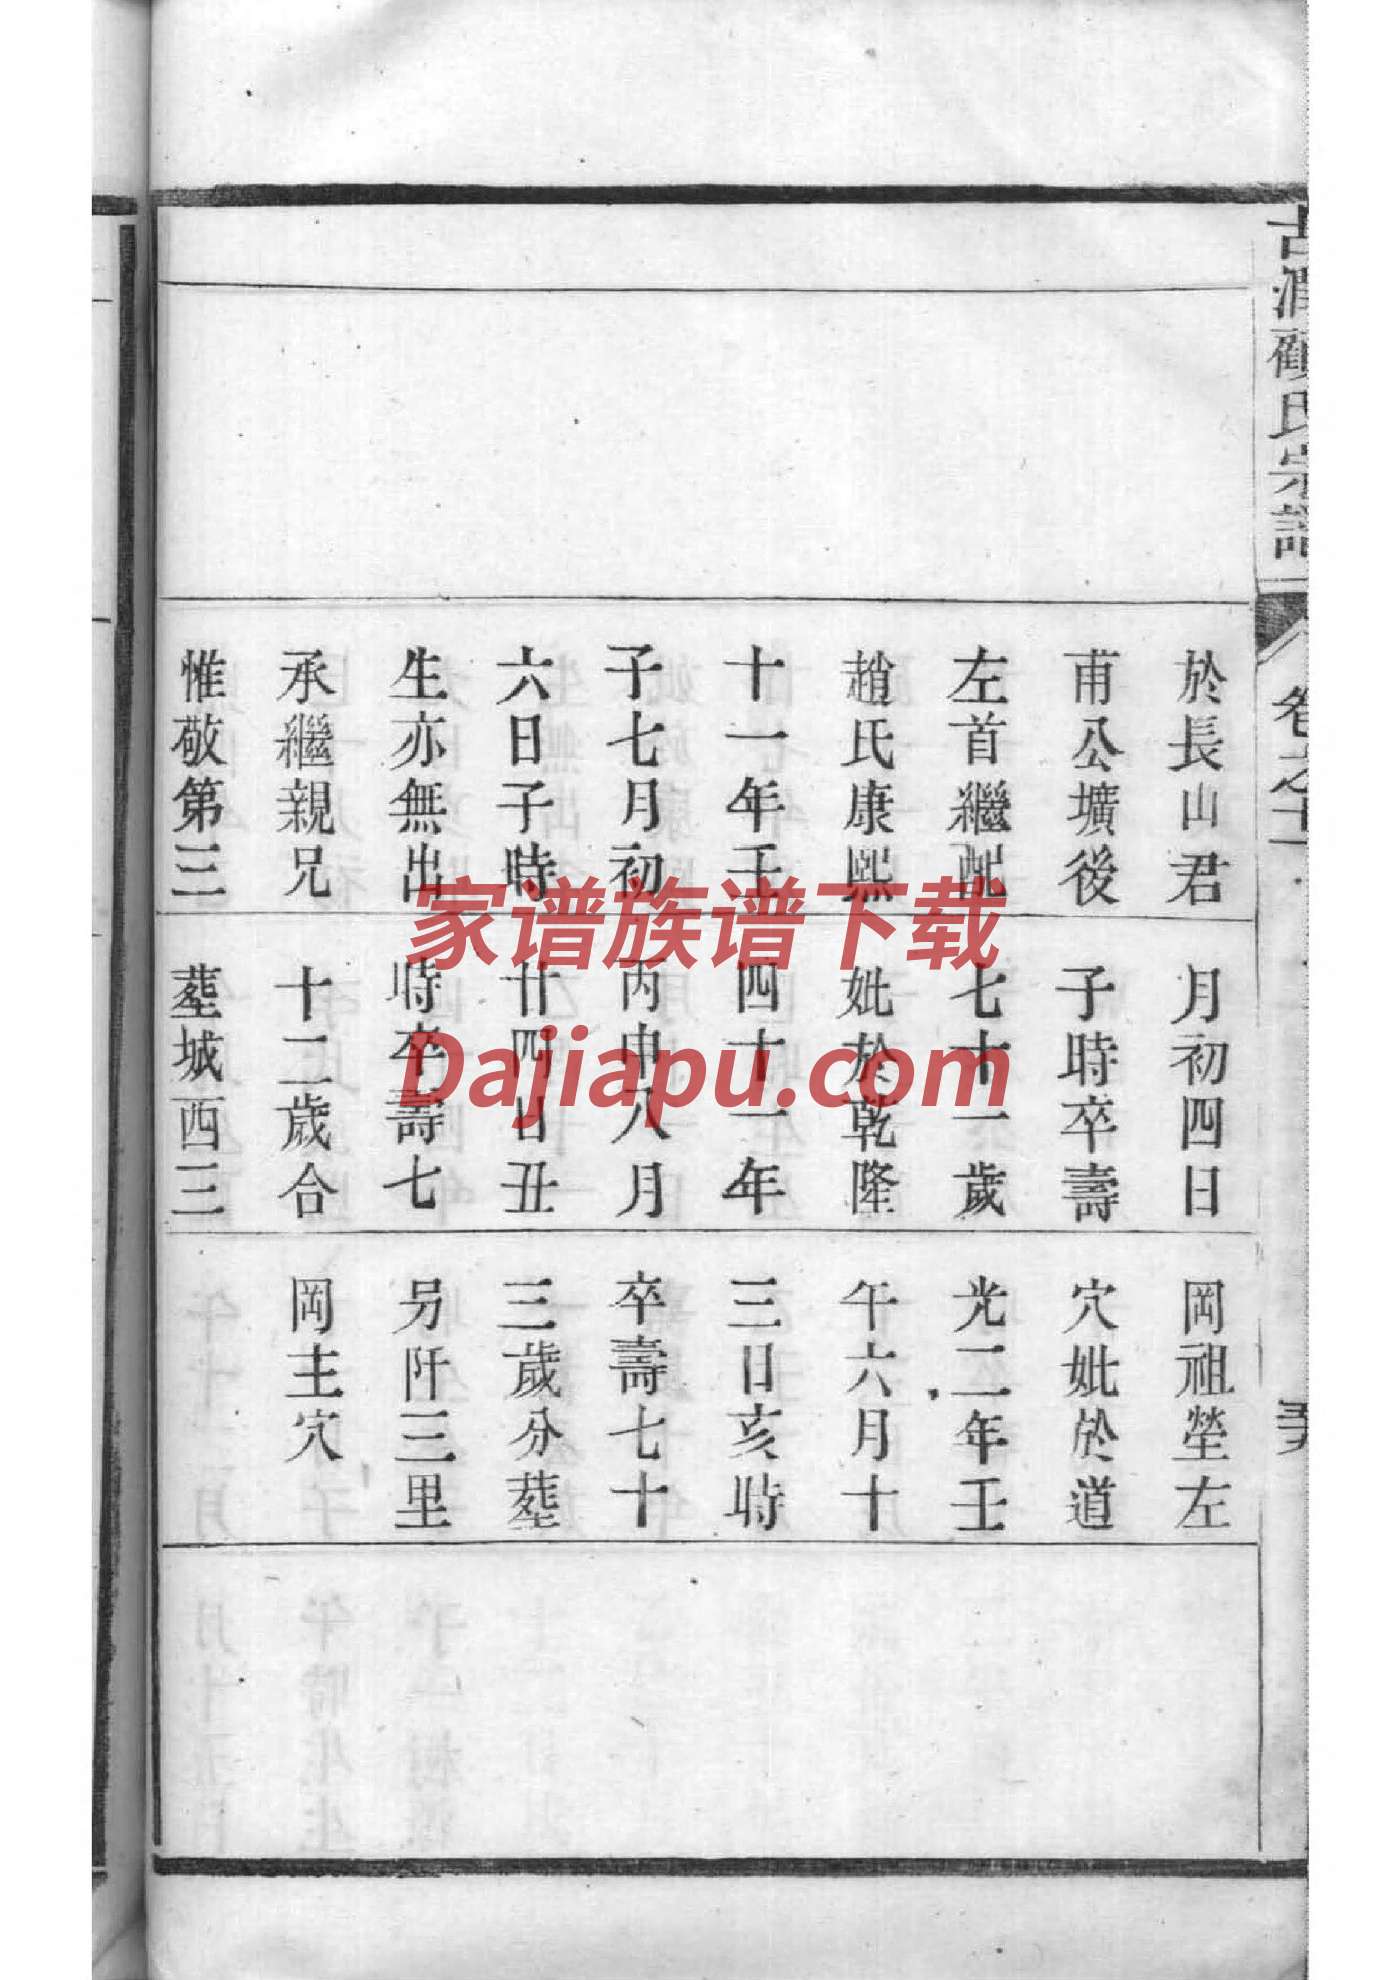 古潤顧氏宗譜
卷之十一
於長山君
甫公壙後
左首繼配
趙氏康熙
十一年壬
子七月初
六日子時
生亦無出
承繼親兄
惟敬第三
月初四日
子時卒壽
七十一歲
妣於乾隆
四十一年
丙申八月
廿四日丑
時卒壽七
十二歲合
塟城西三
岡祖塋左
穴妣於道
光二年壬
午六月十
三日亥時
卒壽七十
三歲分塟
另阡三里
岡主穴
家谱族谱下载
Dajiapu.com